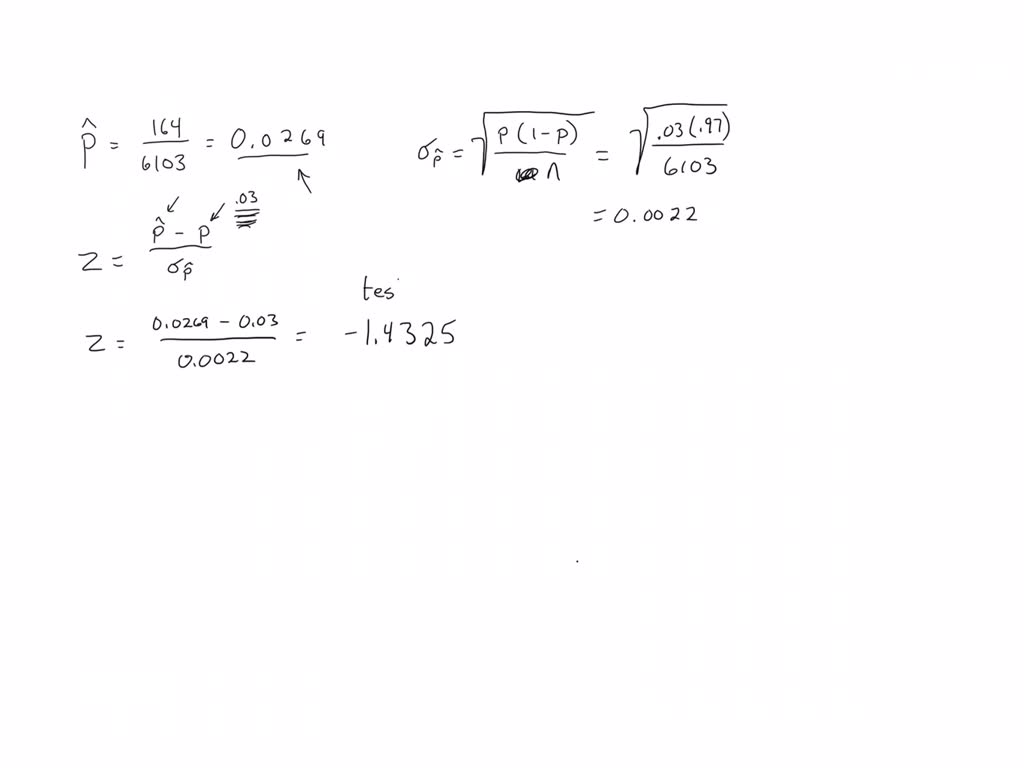 p̂ = 164/6103 = 0.0269
σp̂ = √(p(1-p)/n) = √(.03(.97)/6103)
= 0.0022
.03
z = (p̂ - p)/σp̂
tes
z = (0.0269 - 0.03)/0.0022 = -1.4325